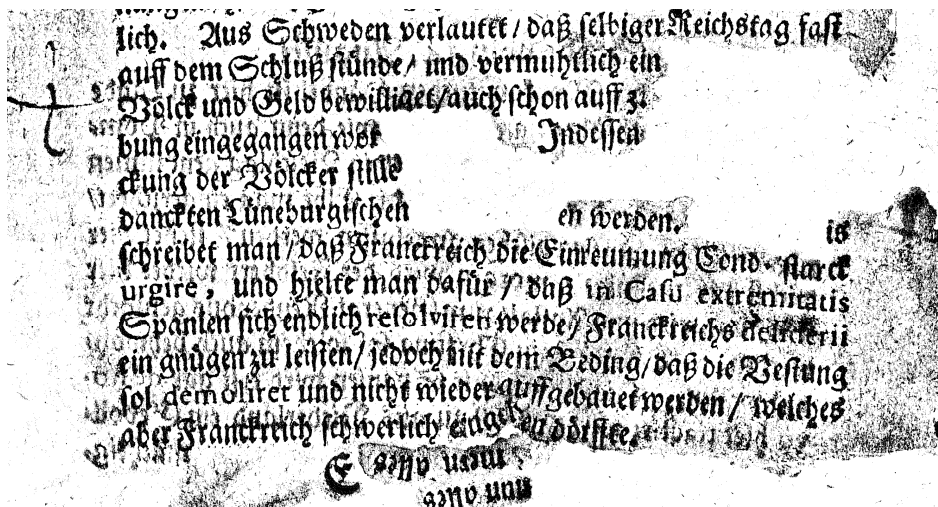 lich. Aus Schweden verlautet / daß selbiger Reichstag fast
auff dem Schluß stünde / und vermuhtlich ein
Völck und Geld bewilliget / auch schon auff
bung eingegangen Indessen
ckung der Völcker stille
danckten Lüneburgischen en werden. is
schreibet man / daß Franckreich die Einreumung Cond- starck
urgire, und hielte man dafür / daß in Casu extremitatis
Spanien sich endlich resolviren werde / Franckreichs desiderii
ein gnügen zu leisten / jedoch mit dem Beding / daß die Vestung
sol demoliret und nicht wieder auffgebauet werden / welches
aber Franckreich schwerlich dörffte.
E